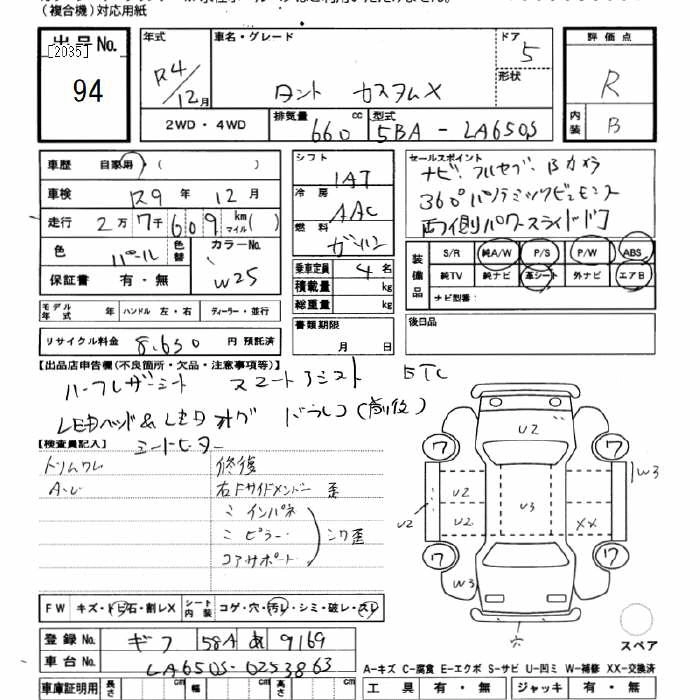 (複合機)対応用紙
出品No. [2035] 94
年式 R4/12月
車名・グレード タント カスタムX
ドア 5
形状
評価点 R
内装 B
2WD・4WD
排気量 660 cc
型式 5BA-LA650S
車歴 自家用・( )
車検 R9年 12月
走行 2万7千609 km マイル( )
色 パール 色替
カラーNo. W25
保証書 有・無
シフト IAT
冷房 AAC
燃料 ガソリン
乗車定員 4名
積載量 kg
総重量 kg
書類期限 月 日
セールスポイント
ナビ・フルセグ・Bカメラ
360°パノラミックビューモニター
両側パワースライドドア
装備品 S/R 純A/W P/S P/W ABS
純TV 純ナビ 革シート 外ナビ エアB
ナビ型番:
後日品
モデル年式 年 ハンドル 左・右 ディーラー・並行
リサイクル料金 8,650 円 預託済
【出品店申告欄(不良箇所・欠品・注意事項等)】
ハーフレザーシート スマートアシスト ETC
LEDヘッド&LEDフォグ ドラレコ(前後)
シートヒーター
【検査員記入】
トリムワレ 修復
右Fサイドメンバー 歪
〃 インパネ
〃 ピラー
コアサポート
シワ歪
U2
ワ ワ
W3
U2 U2 U2 U3 XX
ワ ワ
W3
FW キズ・トビ石・割レX
シート内装 コゲ・穴・汚レ・シミ・破レ・スレ
登録No. ギフ 58A あ 9169
車台No. LA650S-0253863
スペア
A-キズ C-腐食 E-エクボ S-サビ U-凹ミ W-補修 XX-交換済
車庫証明用 長さ cm 幅 cm 高さ cm
工具 有・無 ジャッキ 有・無